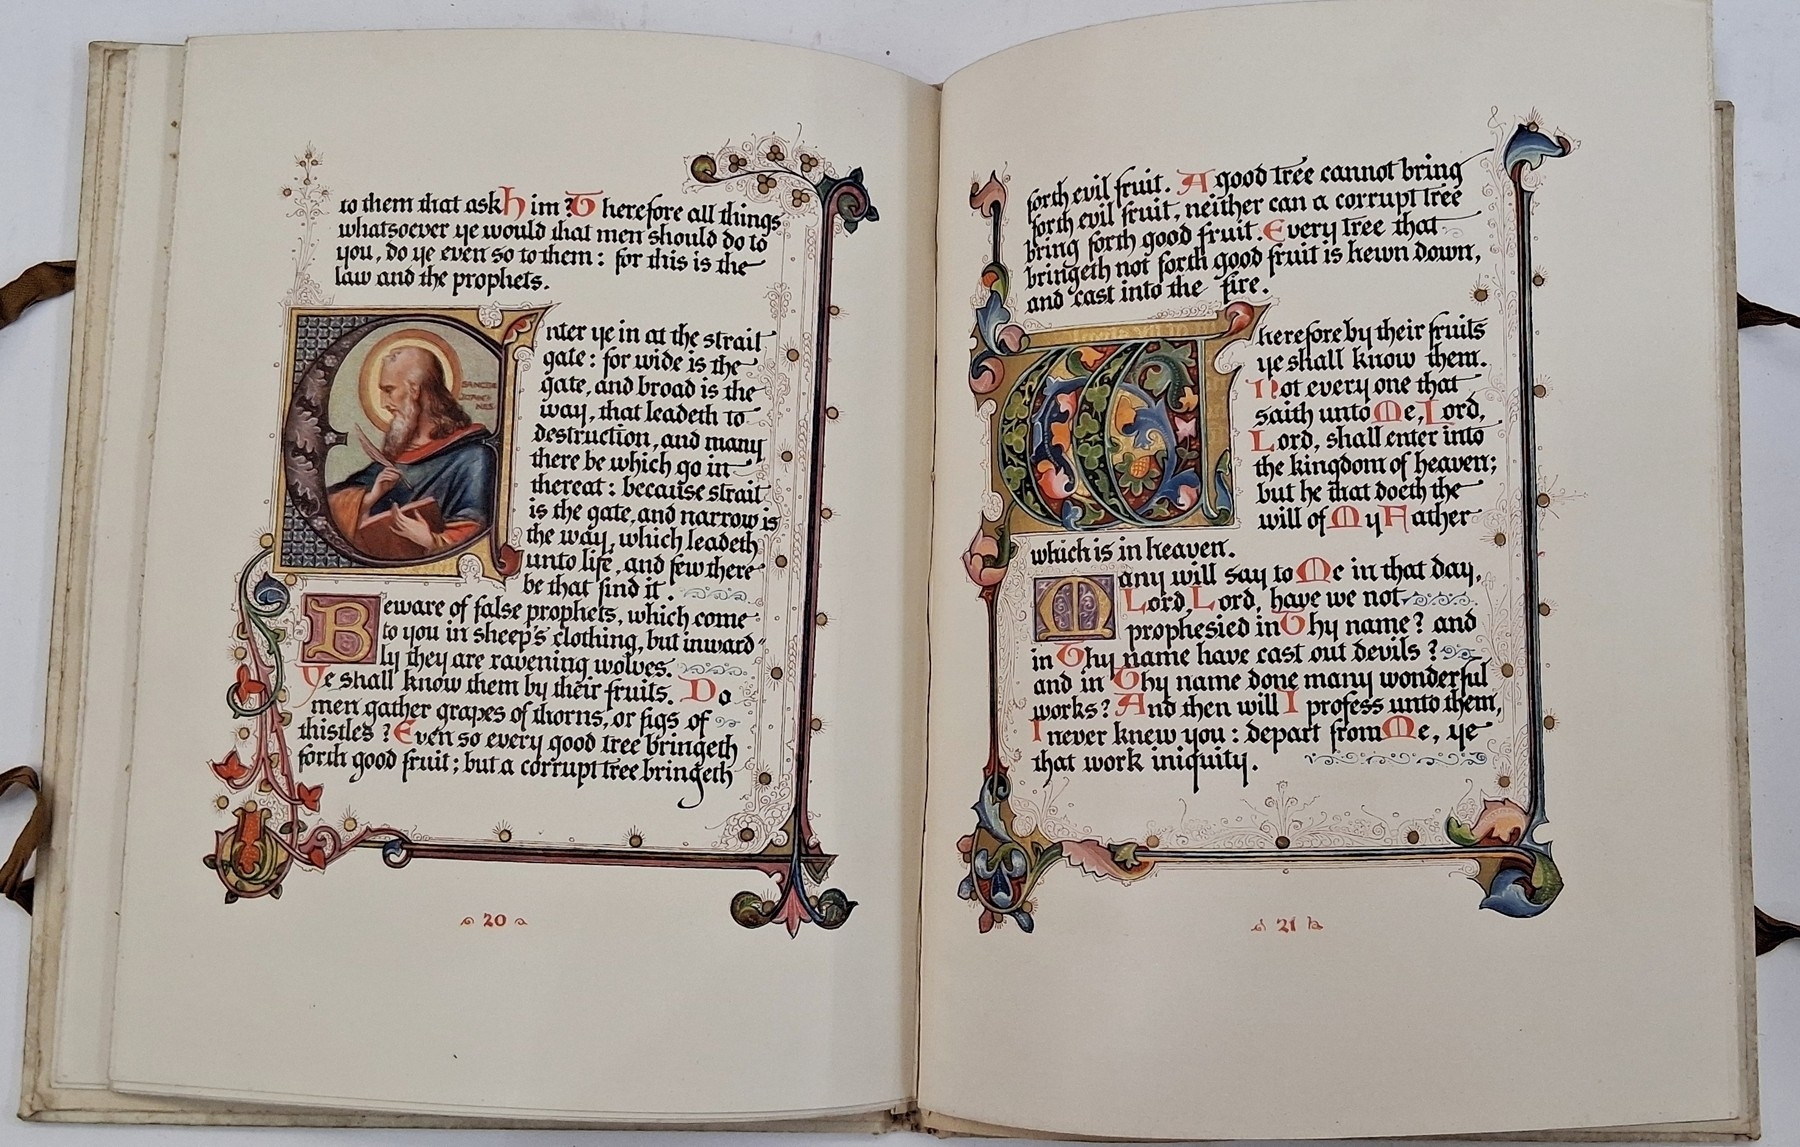 to them that ask Him? Therefore all things
whatsoever ye would that men should do to
you, do ye even so to them: for this is the
law and the prophets.
Enter ye in at the strait
gate: for wide is the
gate, and broad is the
way, that leadeth to
destruction, and many
there be which go in
thereat: because strait
is the gate, and narrow is
the way, which leadeth
unto life, and few there
be that find it.
SANCTUS
JOHAN
NES
Beware of false prophets, which come
to you in sheep's clothing, but inward"
ly they are ravening wolves.
Ye shall know them by their fruits. Do
men gather grapes of thorns, or figs of
thistles? Even so every good tree bringeth
forth good fruit; but a corrupt tree bringeth
20
forth evil fruit. A good tree cannot bring
forth evil fruit, neither can a corrupt tree
bring forth good fruit. Every tree that
bringeth not forth good fruit is hewn down,
and cast into the fire.
Wherefore by their fruits
ye shall know them.
Not every one that
saith unto Me, Lord,
Lord, shall enter into
the kingdom of heaven;
but he that doeth the
will of My Father
which is in heaven.
Many will say to Me in that day,
Lord, Lord, have we not
prophesied in Thy name? and
in Thy name have cast out devils?
and in Thy name done many wonderful
works? And then will I profess unto them,
I never knew you: depart from Me, ye
that work iniquity.
21